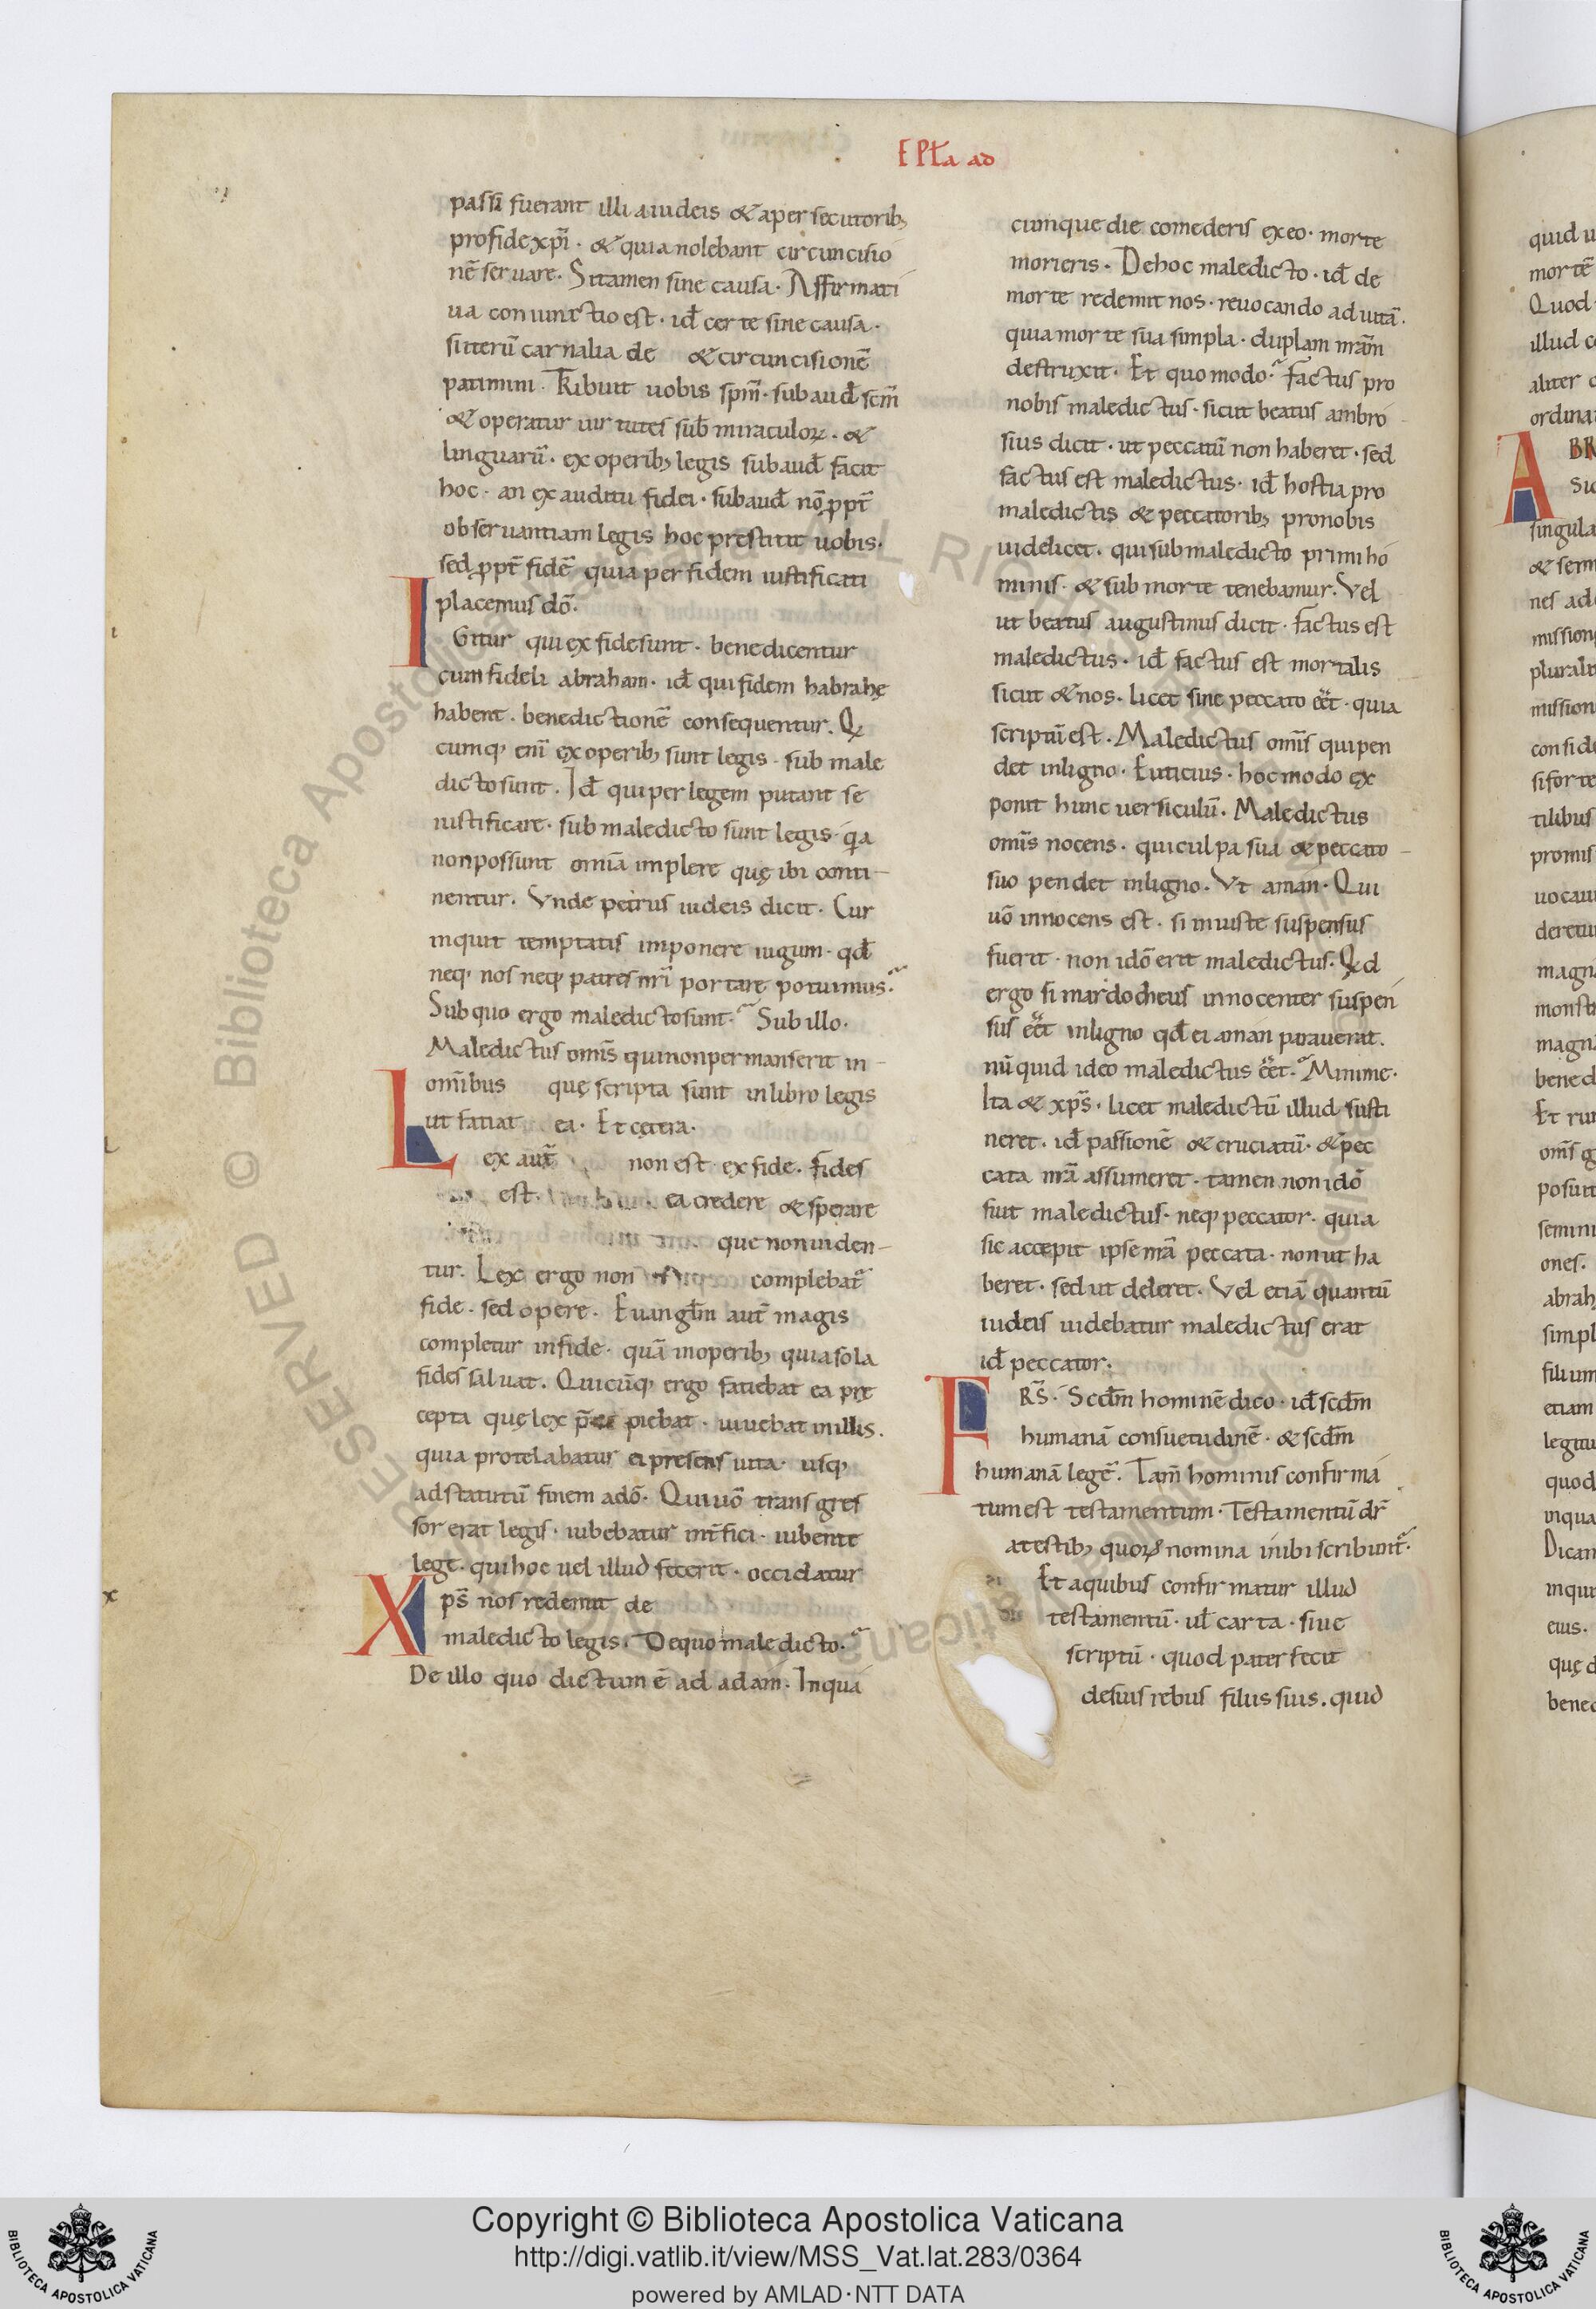 EPLa ad
passi fuerant illi a iudeis & a persecutorib;
pro fide xpi. & quia nolebant circuncisio
nē seruare. Si tamen sine causa. Affirmati
ua coniunctio est. id certe sine causa.
si iterū carnalia de & circuncisionē
patimini. Tribuit uobis spm̄. subaud scm̄
& operatur uirtutes sub miraculoꝝ. &
linguarū. ex operib; legis subaud facit
hoc. an ex auditu fidei. subaud nō ppt̄
obseruantiam legis hoc prestitit uobis.
sed ppt̄ fidē quia per fidem iustificati
placemus dō.
IGitur qui ex fide sunt. benedicentur
cum fideli abraham. id qui fidem habrahę
habent. benedictionē consequentur. Q
cumq; enī ex operib; sunt legis. sub male
dicto sunt. Id qui per legem putant se
iustificare. sub maledicto sunt legis. qa
non possunt omnia implere quę ibi conti-
nentur. Vnde petrus iudeis dicit. Cur
inquit temptatis imponere iugum. qd
neq; nos neq; patres nri portare potuimus.
Sub quo ergo maledicto sunt. Sub illo.
Maledictus omis qui non permanserit in
omībus quę scripta sunt in libro legis
ut fatiat ea. Et cetera.
Lex aut̄ non est ex fide. fides
est. ea credere & sperare
que non uiden-
tur. Lex ergo non complebat
fide. sed opere. Euanglm aut̄ magis
completur in fide. quā in operib; quia sola
fides saluat. Quicūq; ergo fatiebat ea prę
cepta quę lex p̄ci piebat. uiuebat in illis.
quia protelabatur ei presens uita. usq;
ad statutū finem a dō. Qui uō transgres
sor erat legis. iubebatur int̄fici. iubente
lege. qui hoc uel illud fecerit. occidatur
Xps̄ nos redemit de
maledicto legis. De quo maledicto.
De illo quo dictum ē ad adam. In qua
cumque die comederis ex eo. morte
morieris. De hoc maledicto. id de
morte redemit nos. reuocando ad uitā.
quia morte sua simpla. duplam nram̄
destruxit. Et quo modo. Factus pro
nobis maledictus. sicut beatus ambro
sius dicit. ut peccatū non haberet. sed
factus est maledictus. id hostia pro
maledictis & peccatorib; pro nobis
uidelicet. qui sub maledicto primi ho
minis. & sub morte tenebamur. Vel
ut beatus augustinus dicit. factus est
maledictus. id factus est mortalis
sicut & nos. licet sine peccato eēt. quia
scriptū est. Maledictus omīs qui pen
det in ligno. Euticius. hoc modo ex
ponit hunc uersiculū. Maledictus
omīs nocens. qui culpa sua & peccato
suo pendet in ligno. Vt aman. Qui
uō innocens est. si iniuste suspensus
fuerit. non idō erit maledictus. Qd
ergo si mardocheus innocenter suspen
sus eēt in ligno qd ei aman parauerat.
nūquid ideo maledictus eēt. Minime.
Ita & xps̄. licet maledictū illud susti
neret. id passionē & cruciatū. & pec
cata nrā assumeret. tamen non idō
fuit maledictus. neq; peccator. quia
sic accepit ipse nrā peccata. non ut ha
beret. sed ut deleret. Vel etiā quantū
iudeis uidebatur maledictus erat
id peccator.
FRS̄. Scdm hominē dico. id scdm
humanā consuetudinē. & scdm
humanā legē. Tam̄ hominis confirma
tum est testamentum. Testamentū dr̄
a testib; quoꝝ nomina inibi scribunt̄.
Et a quibus confirmatur illud
testamentū. ul carta. siue
scriptū. quod pater fecit
de suis rebus filiis suis. quid
Copyright © Biblioteca Apostolica Vaticana
http://digi.vatlib.it/view/MSS_Vat.lat.283/0364
powered by AMLAD·NTT DATA